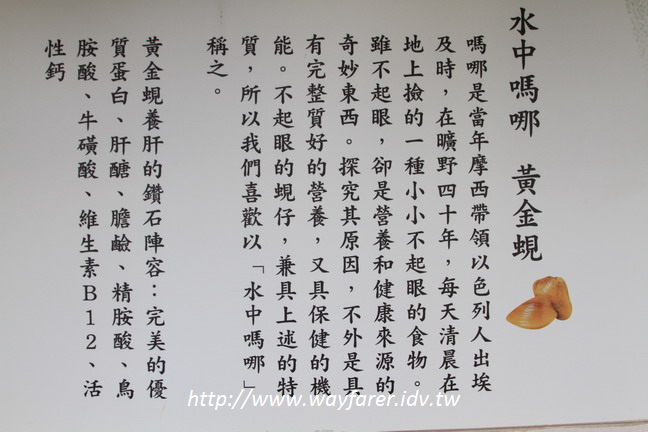 水中嗎哪　黃金蜆
嗎哪是當年摩西帶領以色列人出埃
及時，在曠野四十年，每天清晨在
地上撿的一種小小不起眼的食物。
雖不起眼，卻是營養和健康來源的
奇妙東西。探究其原因，不外是具
有完整質好的營養，又具保健的機
能。不起眼的蜆仔，兼具上述的特
質，所以我們喜歡以「水中嗎哪」
稱之。
黃金蜆養肝的鑽石陣容：完美的優
質蛋白、肝醣、膽鹼、精胺酸、鳥
胺酸、牛磺酸、維生素B12、活
性鈣
http://www.wayfarer.idv.tw